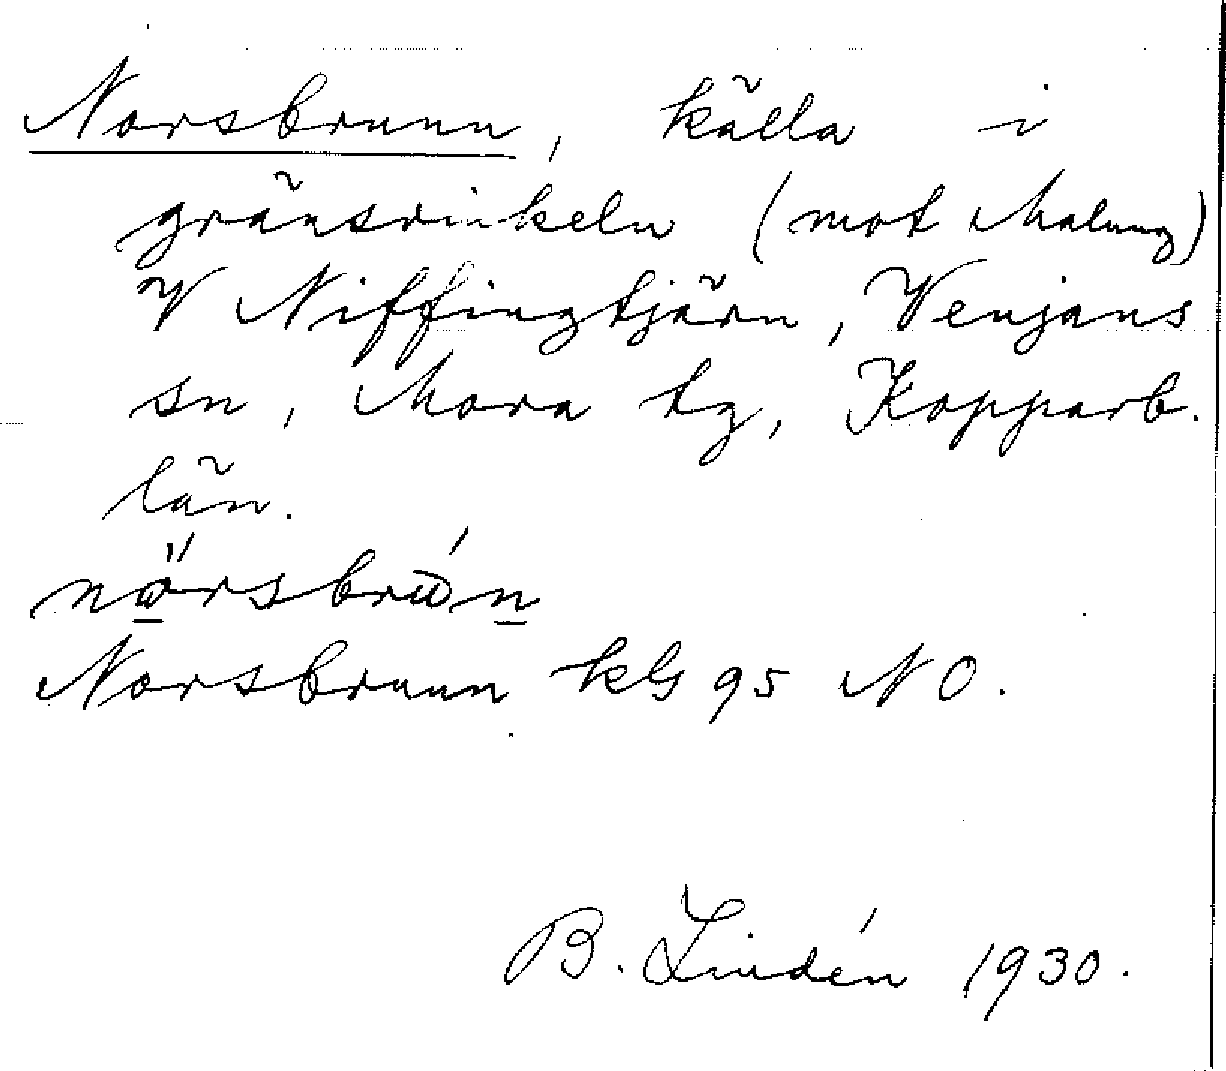 Norsbrunn, källa i
gränsvinkeln (mot Malung)
V Niffingtjärn, Venjans
sn, Mora tg, Kopparb.
län.
Norsbrunn kbl 95 NO.
B. Lindén 1930.